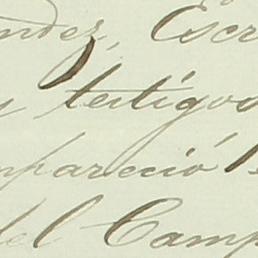 ndez, Escr
y testigos
mpareció
del Camp